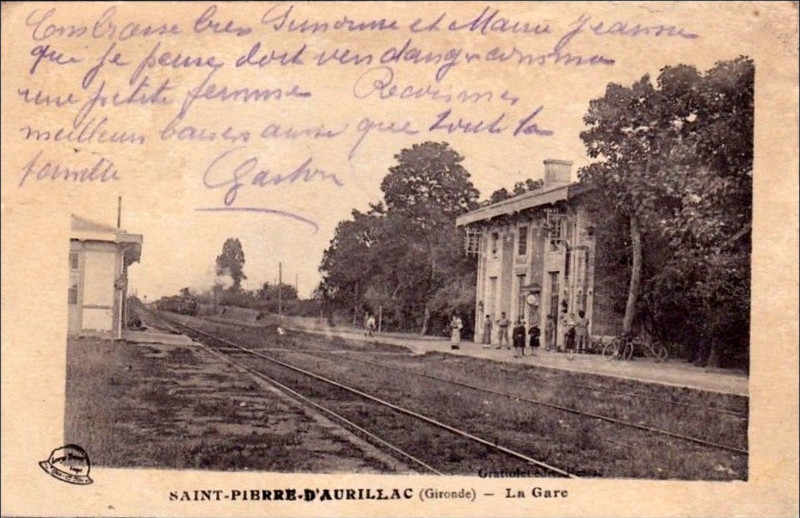 Embrasse bien Simonne et Marie Jeanne
que je pense doit vendanger comme
une petite femme Recois mes
meilleurs baisers ainsi que toute la
famille
Gaston
Gratiolet édit.
SAINT-PIERRE-D'AURILLAC (Gironde) — La Gare